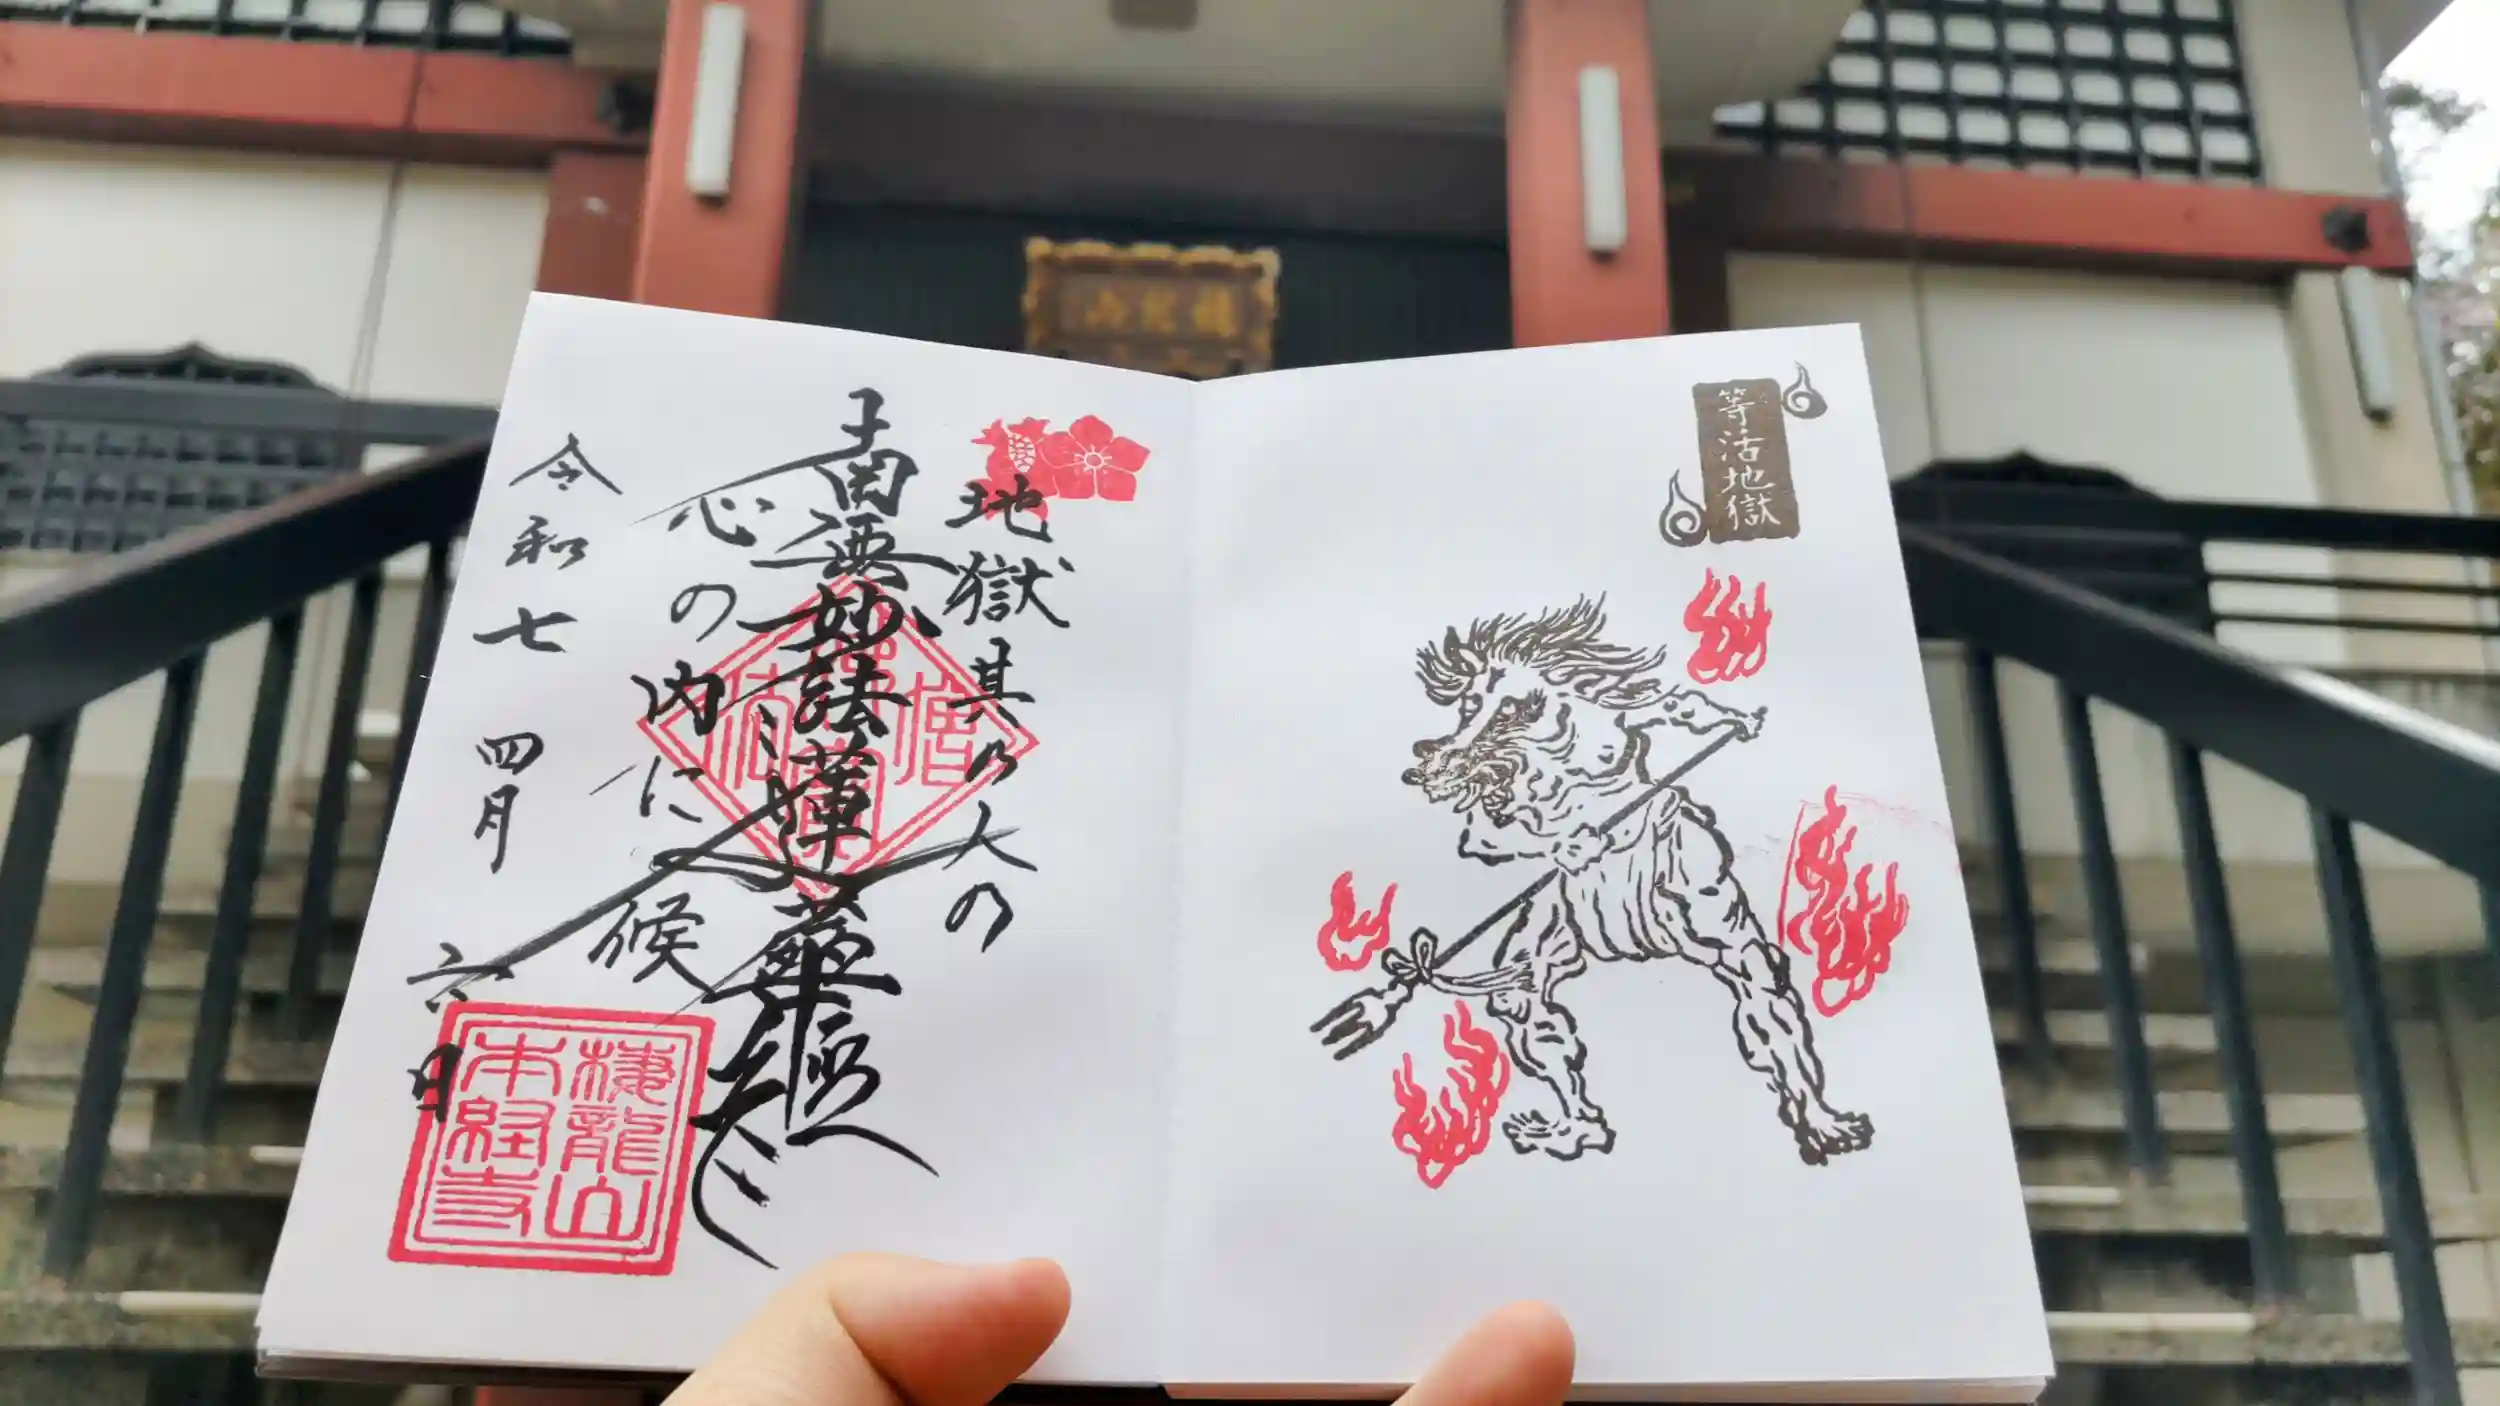 等活地獄
地獄其乃人の
南無妙法蓮華経
心の内に候
令和七 四月 六日
棲龍山
本経寺